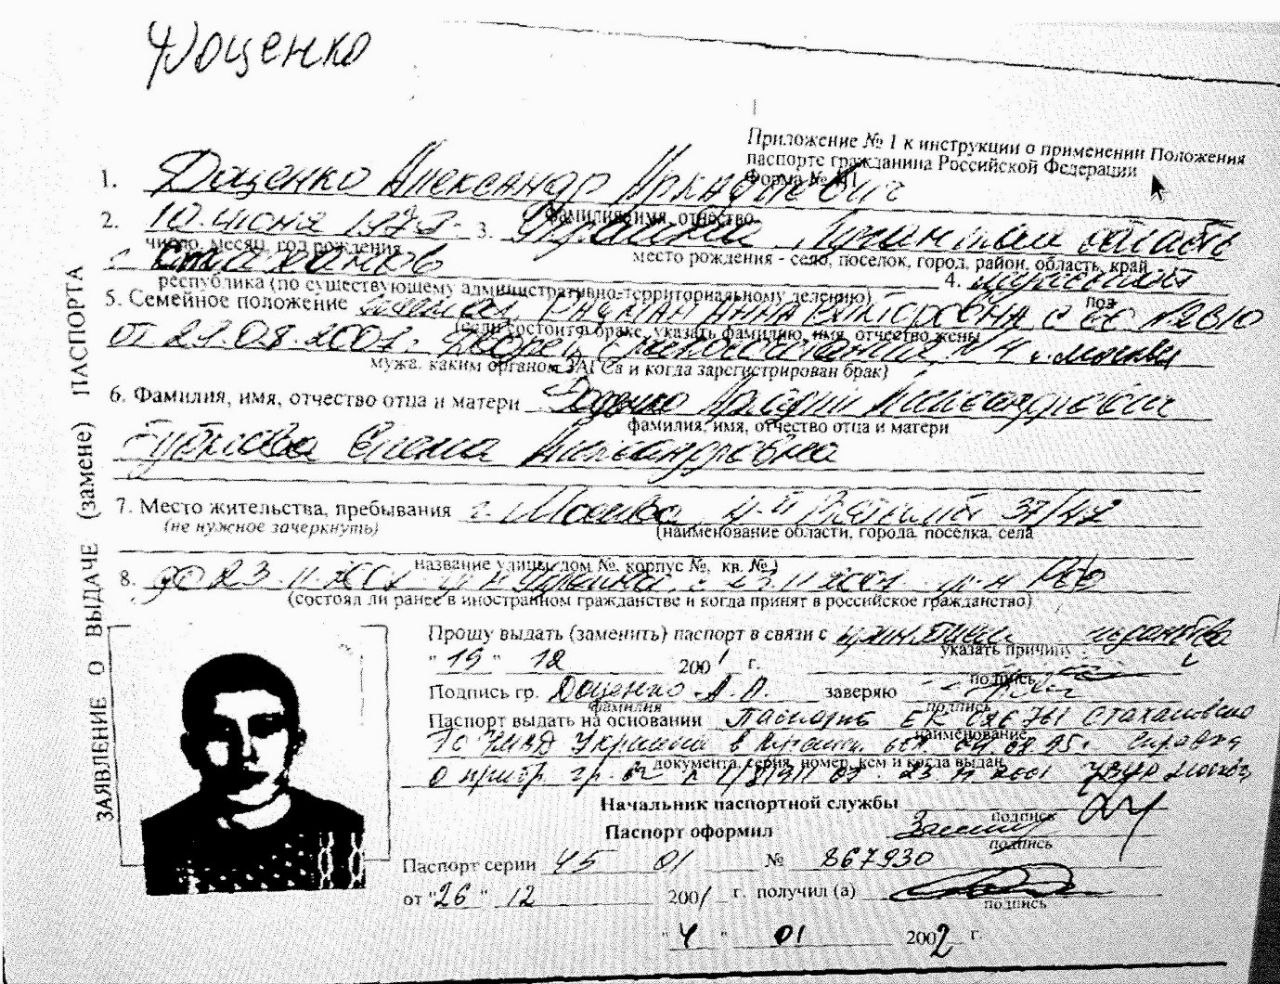 Доценко
Приложение № 1 к инструкции о применении Положения
паспорте гражданина Российской Федерации
Форма №
1. Доценко Александр Аркадиевич
фамилия, имя, отчество
2. 10 июня 197 3. Украина Луганская область
число, месяц, год рождения
место рождения - село, поселок, город, район, область, край
г. Стаханов 4.
республика (по существующему административно-территориальному делению)
пол
5. Семейное положение АННА ВИКТОРОВНА
(если состоит в браке, указать фамилию, имя, отчество жены
от 2001 Дворец бракосочетания N 4 г. Москвы
мужа, каким органом ЗАГСа и когда зарегистрирован брак)
6. Фамилия, имя, отчество отца и матери Доценко Аркадий Александрович
фамилия, имя, отчество отца и матери
Елена Александровна
7. Место жительства, пребывания г. Москва 37/47
(не нужное зачеркнуть)
(наименование области, города, поселка, села
название улицы, дом №, корпус №, кв. №)
8. до 23.11.2001 Украина, с 23.11.2001 РФ
(состоял ли ранее в иностранном гражданстве и когда принят в российское гражданство)
ЗАЯВЛЕНИЕ О ВЫДАЧЕ (замене) ПАСПОРТА
Прошу выдать (заменить) паспорт в связи с
указать причину
" 19 " 12 2001 г.
подпись
Подпись гр. Доценко А.А. заверяю
фамилия
подпись
Паспорт выдать на основании Паспорт ЕК Стахановским
наименование
УМВД Украины в 95г. Справка
документа, серия, номер, кем и когда выдан
о 23 11 2001 Москвы
Начальник паспортной службы
подпись
Паспорт оформил
подпись
Паспорт серии 45 01 № 867930
от "26" 12 2001 г. получил (а)
подпись
" 4 " 01 2002 г.